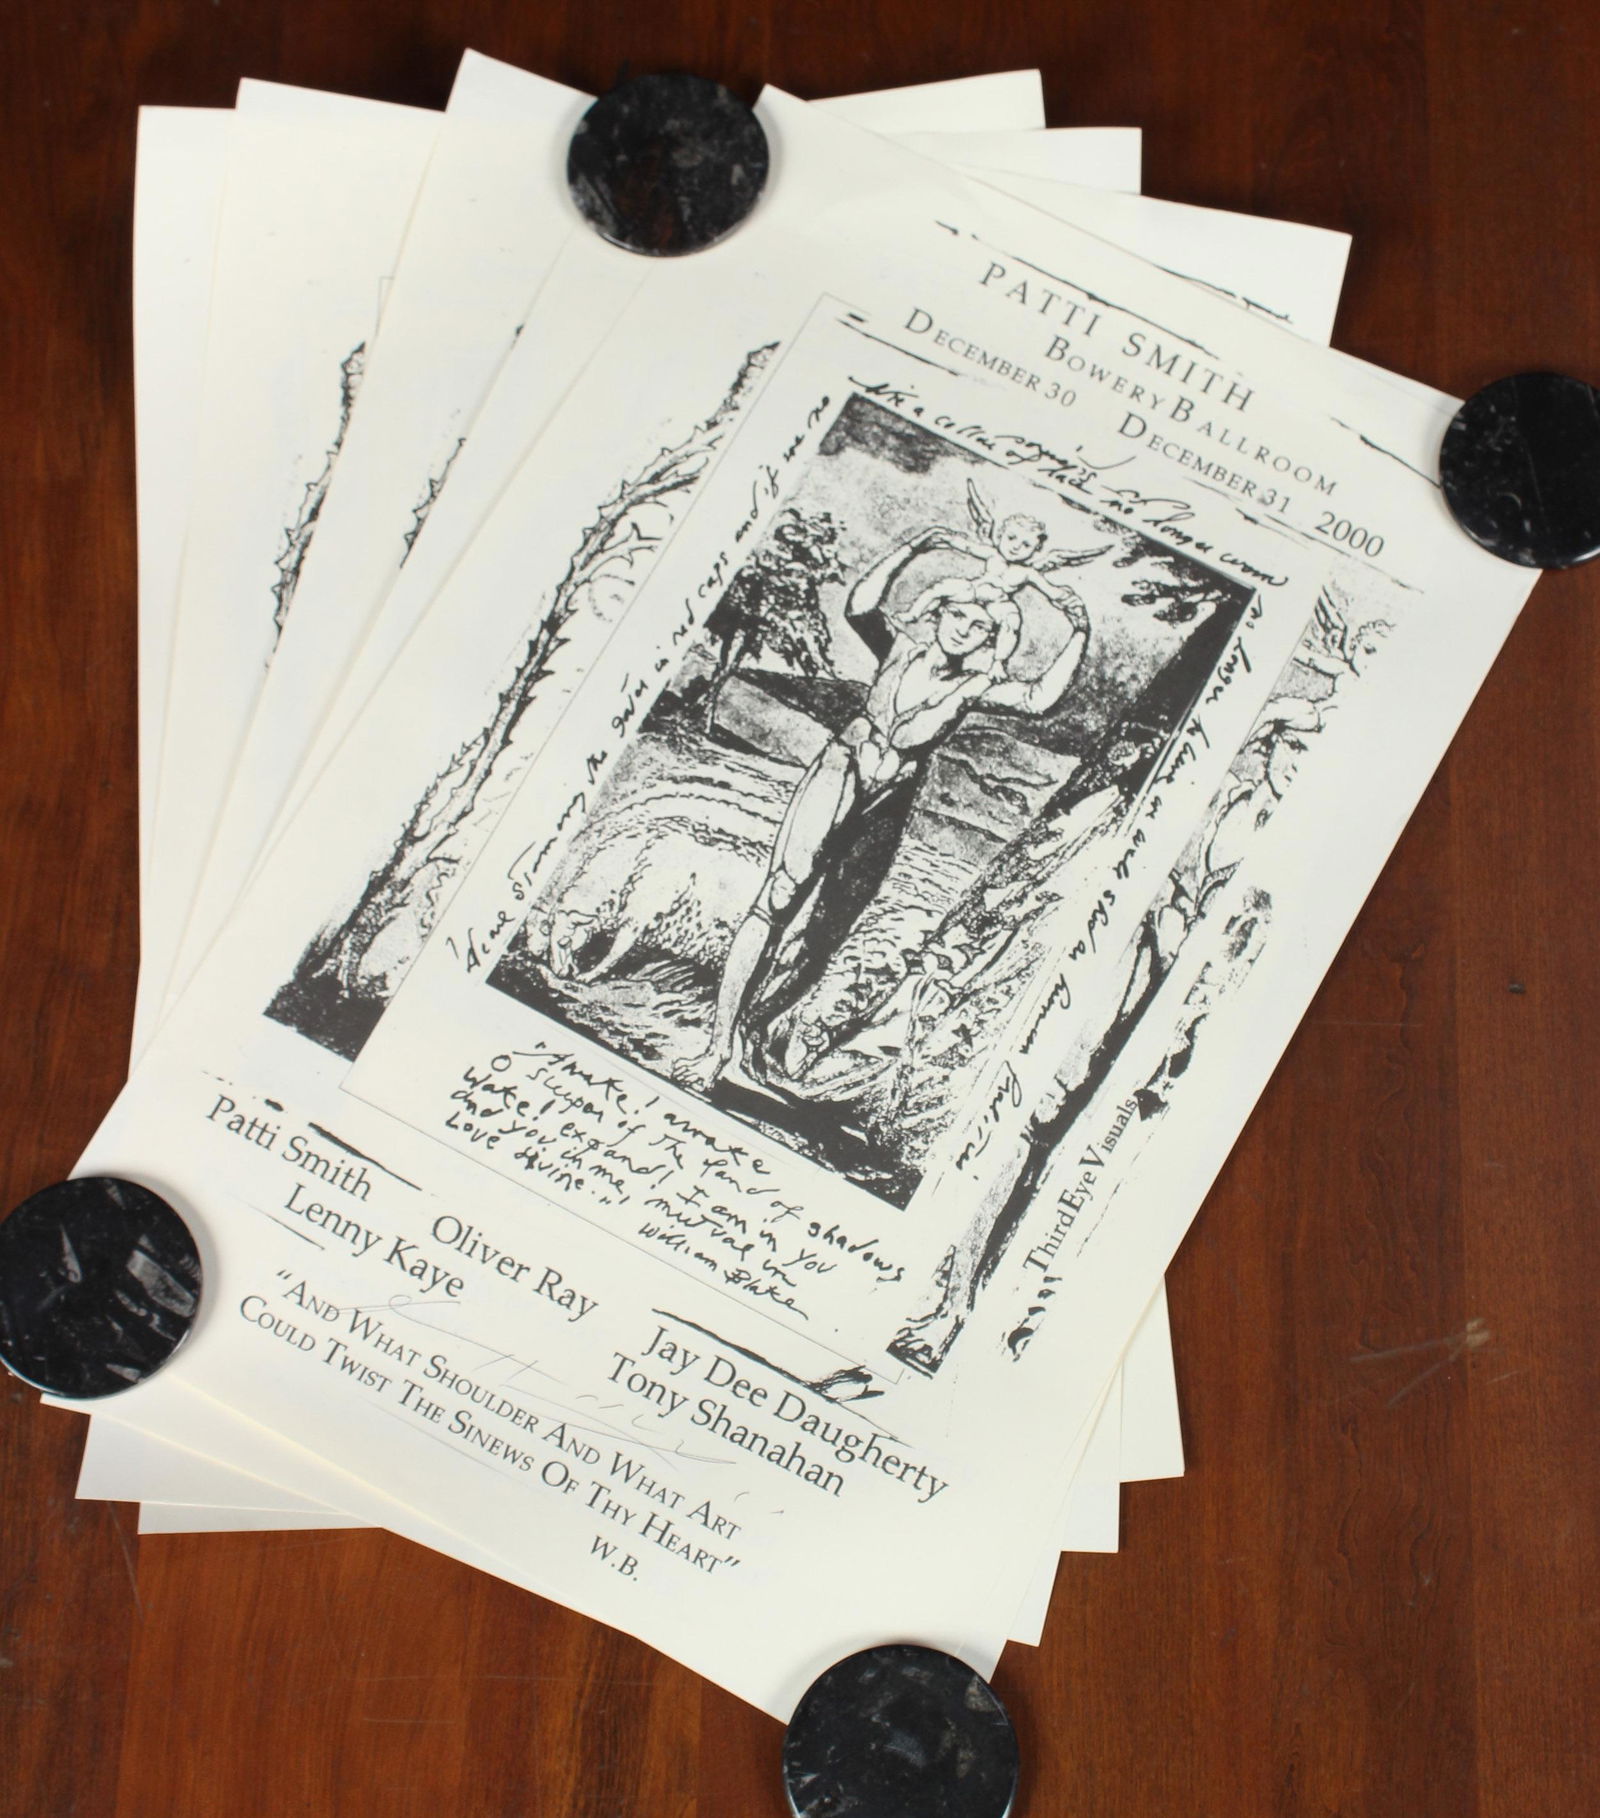 PATTI SMITH
BOWERY BALLROOM
DECEMBER 30 DECEMBER 31 2000
like a collar of lace no longer worn
no longer to live in a
human
We are storming the gates in red caps and if we are no
"Awake! awake
O sleeper of the land of shadows
Wake! expand! I am in you
and you in me, mutual in
Love divine..."
William Blake
ThirdEyeVisuals
Patti Smith
Lenny Kaye
Oliver Ray
Jay Dee Daugherty
Tony Shanahan
"AND WHAT SHOULDER AND WHAT ART
COULD TWIST THE SINEWS OF THY HEART"
W.B.